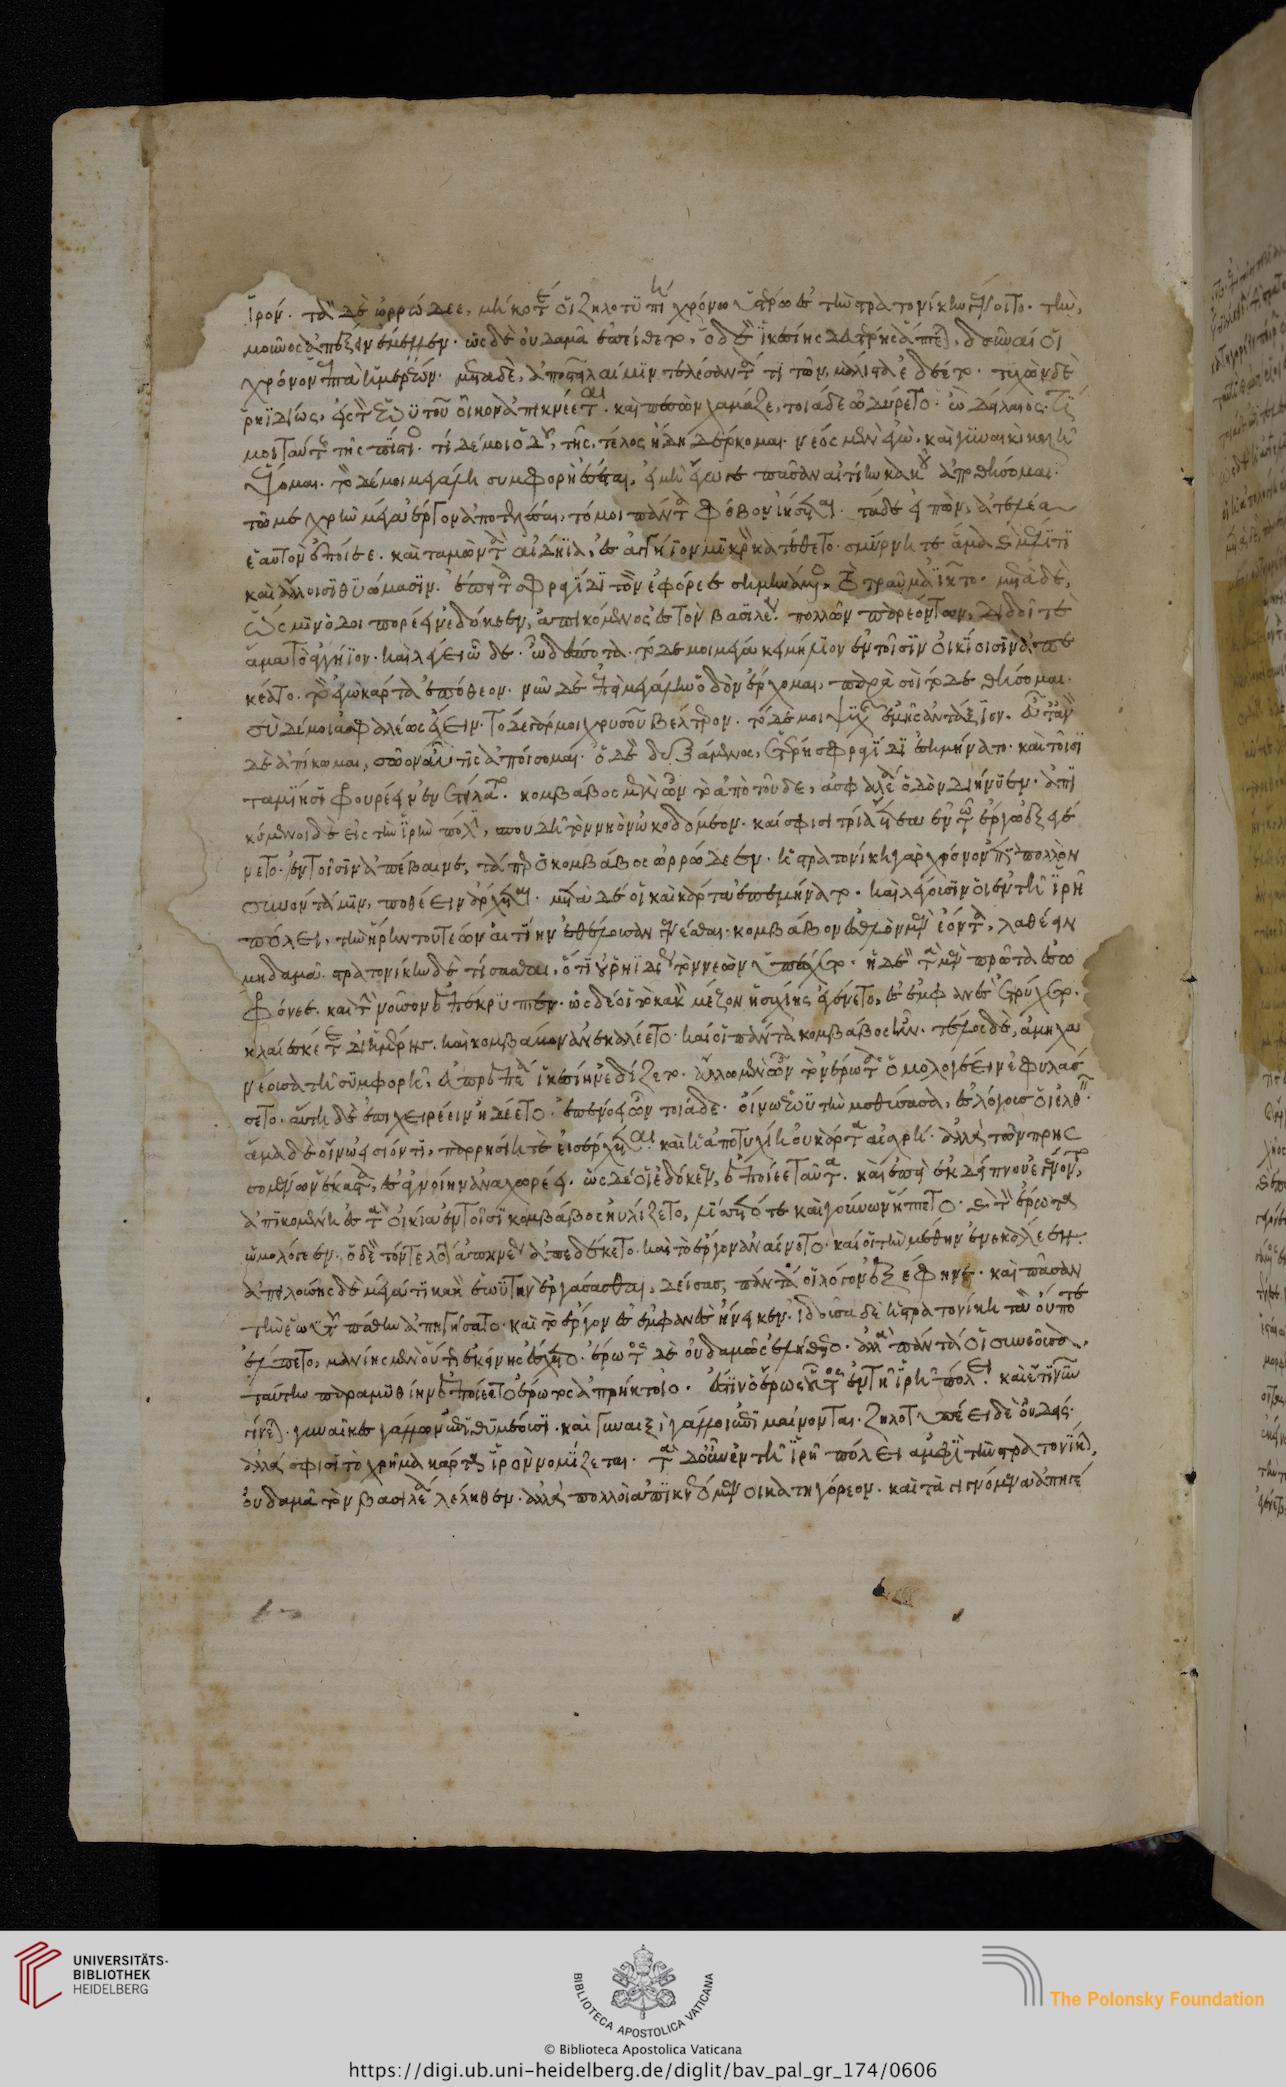 ἱρόν. τὰ δὲ ὠρρώδεε, μή κοτέ οἱ ζηλοτυπίη χρόνῳ ὑστέρῳ ἐς τὴν στρατονίκην γένοιτο. τὴν,
μοῦνος ἀπάξειν ἔμελλεν. ὡς δὲ οὐδαμᾶ ἐπείθετο, ὁ δὲ ἱκεσίης δευτέρης ἅπτεται, δοῦναί οἱ
χρόνον ἑπτὰ ἡμερέων. μετὰ δὲ, ἀποστεῖλαί μιν τελέσαντά τι τῶν μάλιστα ἐδέετο. τυχὼν δὲ
ῥηϊδίως, ἐς τὸν ἑωϋτοῦ οἶκον ἀπικνέεται. καὶ πεσὼν χαμάζε, τοιάδε ὠδύρετο. ὦ δείλαιος. τί
μοι ταύτης τῆς πίστιος. τί δέ μοι ὁδοῦ, τῆς τέλος ἤδη δέρκομαι. νέος μὲν ἐγὼ. καὶ γυναικὶ καλῇ
ἕψομαι. τὸ δέ μοι μεγάλη συμφορὴ ἔσεται, εἰ μὴ ἔγωγε πᾶσαν αἰτίην κακοῦ ἀποθήσομαι.
τῷ με χρὴν μέγα ἔργον ἀποτελέσαι, τό μοι πάντα φόβον ἰήσεται. τάδε εἰπὼν, ἀτελέα
ἑαυτὸν ἐποίεε. καὶ ταμὼν τὰ αἰδοῖα, ἐς ἀγγήϊον μικρὸν κατέθετο. σμύρνῃ τε ἅμα καὶ μέλιτι
καὶ ἄλλοισι θυώμασιν. ἔπειτα σφρηγῖδι τὴν ἐφόρεε σημηνάμενος. τὸ τραῦμα ἰῆτο. μετὰ δὲ,
ὥς μιν ὁδοιπορέειν ἐδόκεεν, ἀπικόμενος ἐς τὸν βασιλέα. πολλῶν παρεόντων, διδοῖ τὲ
ἅμα τὸ ἀγγήϊον. καὶ λέγει ὧδε. ὦ δέσποτα. τόδε μοι μέγα κειμήλιον ἐν τοῖσιν οἰκίοισιν ἀπε
κέατο. τὸ ἐγὼ κάρτα ἐπόθεον. νῦν δὲ ἐπεὶ μεγάλην ὁδὸν ἔρχομαι, παρὰ σοὶ τόδε θήσομαι.
σὺ δέ μοι ἀσφαλέως ἔχειν. τόδε γάρ μοι χρυσοῦ βέλτερον. τόδε μοι ψυχῆς ἐμῆς ἀντάξιον. εὖτ' ἂν
δὲ ἀπίκωμαι, σῶον αὖτις ἀποίσομαι. ὁ δὲ δεξάμενος, ἑτέρῃ σφρηγῖδι ἐσημήνατο. καὶ τοῖσι
ταμίῃσι φρουρέειν ἐνετείλατο. κομβάβος μὲν ὦν τὸ ἀπὸ τοῦδε, ἀσφαλέα ὁδὸν διήνυεν. ἀπι
κόμενοι δὲ εἰς τὴν ἱρὴν πόλιν, σπουδῇ τὸν νηὸν ᾠκοδόμεον. καί σφισι τρία ἔτεα ἐν τῷ ἔργῳ ἐξεγέ
νετο. ἐν τοῖσιν ἀπέβαινε, τάπερ ὁ κομβάβος ὠρρώδεεν. ἡ στρατονίκη γὰρ χρόνον ἐπὶ πολλὸν
συνόντα μιν, ποθέειν ἄρχεται. μετὰ δέ οἱ καὶ κάρτα ἐπεμήνατο. καὶ λέγουσιν οἱ ἐν τῇ ἱρῇ
πόλει, τὴν ἥρην τουτέων αἰτίην ἐθέλουσαν γενέσθαι. κομβάβον ἐσθλὸν μὲν ἐόντα, λαθέειν
μηδαμᾶ. στρατονίκην δὲ τίσασθαι, ὅτι οὐ ῥηϊδίως τὸν νεὼν ὑπέσχετο. ἡ δὲ τὰ μὲν πρῶτα ἐσω
φρόνεε. καὶ τὴν νοῦσον ἀπέκρυπτεν. ὡς δέ οἱ τὸ κακὸν μέζον ἡσυχίης ἐγένετο, ἐς ἐμφανὲς ἐτρύχετο.
κλαίεσκέ τε δι' ἡμέρης. καὶ κομβάβον ἀνεκαλέετο. καί οἱ πάντα κομβάβος ἦν. τέλος δὲ, ἀμηχα
νέουσα τῇ συμφορῇ, εὐπρεπέα ἱκεσίην ἐδίζετο. ἄλλῳ μὲν ὦν τὸν ἔρωτα ὁμολογέειν ἐφυλάσ
σετο. αὐτὴ δὲ ἐπιχειρέειν ᾐδέετο. ἐπενόεε ὦν τοιάδε. οἴνῳ ἑωϋτὴν μεθύσασα, ἐς λόγους οἱ ἐλθεῖν.
ἅμα δὲ οἴνῳ ἐσιόντι, παρρησίη τὲ εἰσέρχεται. καὶ ἡ ἀποτυχίη οὐ κάρτα αἰσχρή. ἀλλὰ τῶν πρησ
σομένων ἕκαστα, ἐς ἀγνοίην ἀναχωρέει. ὡς δέ οἱ ἐδόκεεν, ἐποίεε ταῦτα. καὶ ἐπεὶ ἐκ δείπνου ἐγένοντο,
ἀπικομένη ἐς τὰ οἰκία ἐν τοῖσι κομβάβος ηὐλίζετο, λίσσετό τε καὶ γούνων ἥπτετο. καὶ τὸν ἔρωτα
ὡμολόγεεν. ὁ δὲ τόν τε λόγον ἀπηνέως ἀπεδέκετο. καὶ τὸ ἔργον ἀναίνετο. καί οἱ τὴν μέθην ἐπεκάλεεν.
ἀπειλούσης δὲ μέγα τι κακὸν ἑωϋτὴν ἐργάσασθαι, δείσας, πάντα οἱ λόγον ἐξέφηνε. καὶ πᾶσαν
τὴν ἑωϋτοῦ πάθην ἀπηγήσατο. καὶ τὸ ἔργον ἐς ἐμφανὲς ἤνεικεν. ἰδοῦσα δὲ ἡ στρατονίκη τὰ οὔποτε
ἔλπετο, μανίης μὲν ἐκείνης ἔσχετο. ἔρωτος δὲ οὐδαμῶς ἐλήθετο. ἀλλὰ πάντα οἱ συνεοῦσα,
ταύτην παραμυθίην ἐποιέετο ἔρωτος ἀπρήκτοιο. ἔστιν ὁ ἔρως οὗτος ἐν τῇ ἱρῇ πόλει. καὶ ἔτι νῦν
γίνεται. γυναῖκες γάλλων ἐπιθυμέουσι. καὶ γυναιξὶ γάλλοι ἐπιμαίνονται. ζηλοτυπέει δὲ οὐδείς.
ἀλλά σφισι τὸ χρῆμα κάρτα ἱρὸν νομίζεται. τὰ δ' ὦν ἐν τῇ ἱρῇ πόλει ἀμφὶ τὴν στρατονίκην,
οὐδαμᾶ τὸν βασιλέα λέληθεν. ἀλλὰ πολλοὶ ἀπικνεόμενοι κατηγόρεον. καὶ τὰ γινόμενα ἀπηγέ
UNIVERSITÄTS-
BIBLIOTHEK
HEIDELBERG
BIBLIOTECA APOSTOLICA VATICANA
The Polonsky Foundation
© Biblioteca Apostolica Vaticana
https://digi.ub.uni-heidelberg.de/diglit/bav_pal_gr_174/0606